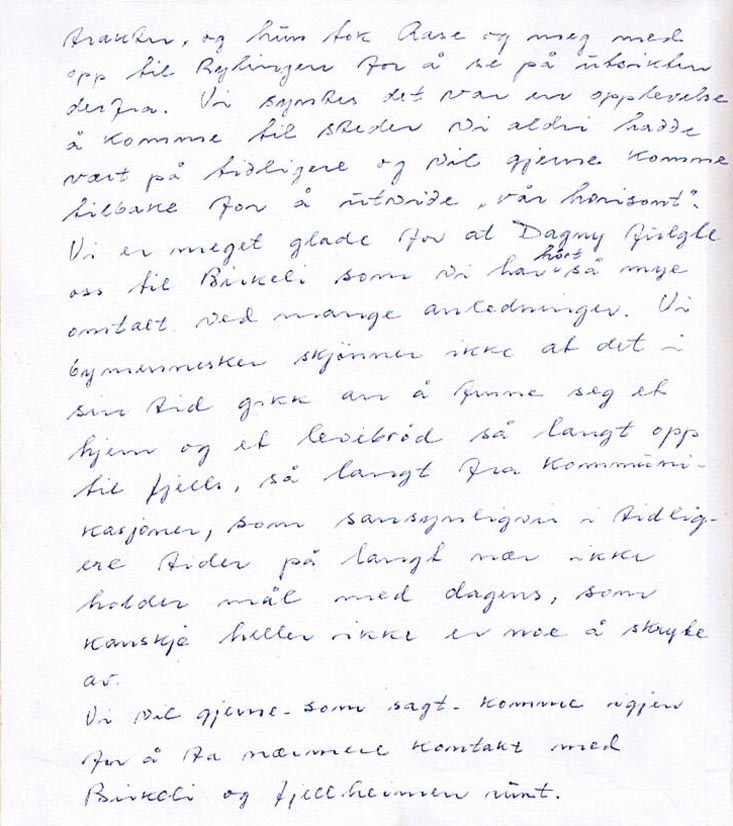 trakter, og hun tok Aase og meg med
opp til Bylingen for å se på utsikten
derfra. Vi syntes det var en opplevelse
å komme til steder vi aldri hadde
vært på tidligere og vil gjerne komme
tilbake for å utvide „vår horisont".
Vi er meget glade for at Dagny fulgte
oss til Birkeli som vi har hørt så mye
omtalt ved mange anledninger. Vi
bymennesker skjønner ikke at det i
sin tid gikk an å finne seg et
hjem og et levebrød så langt opp
til fjells, så langt fra kommuni-
kasjoner, som sansynligvis i tidlig-
ere tider på langt nær ikke
holder mål med dagens, som
kanskje heller ikke er noe å skryte
av.
Vi vil gjerne - som sagt - komme igjen
for å ta nærmere kontakt med
Birkeli og fjellheimen runt.